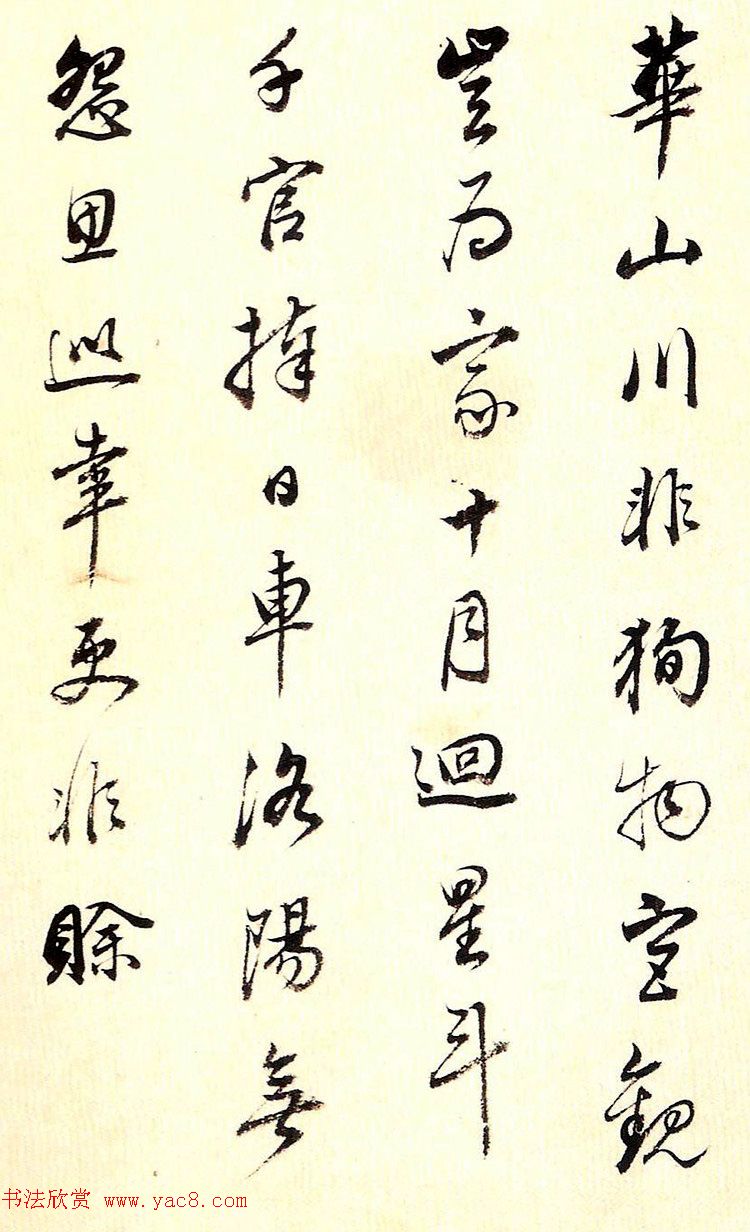 華山川非狥物宮觀
豈為家十月迴星斗
千官捧日車洛陽無
怨思巡幸更非賒
书法欣赏 www.yac8.com